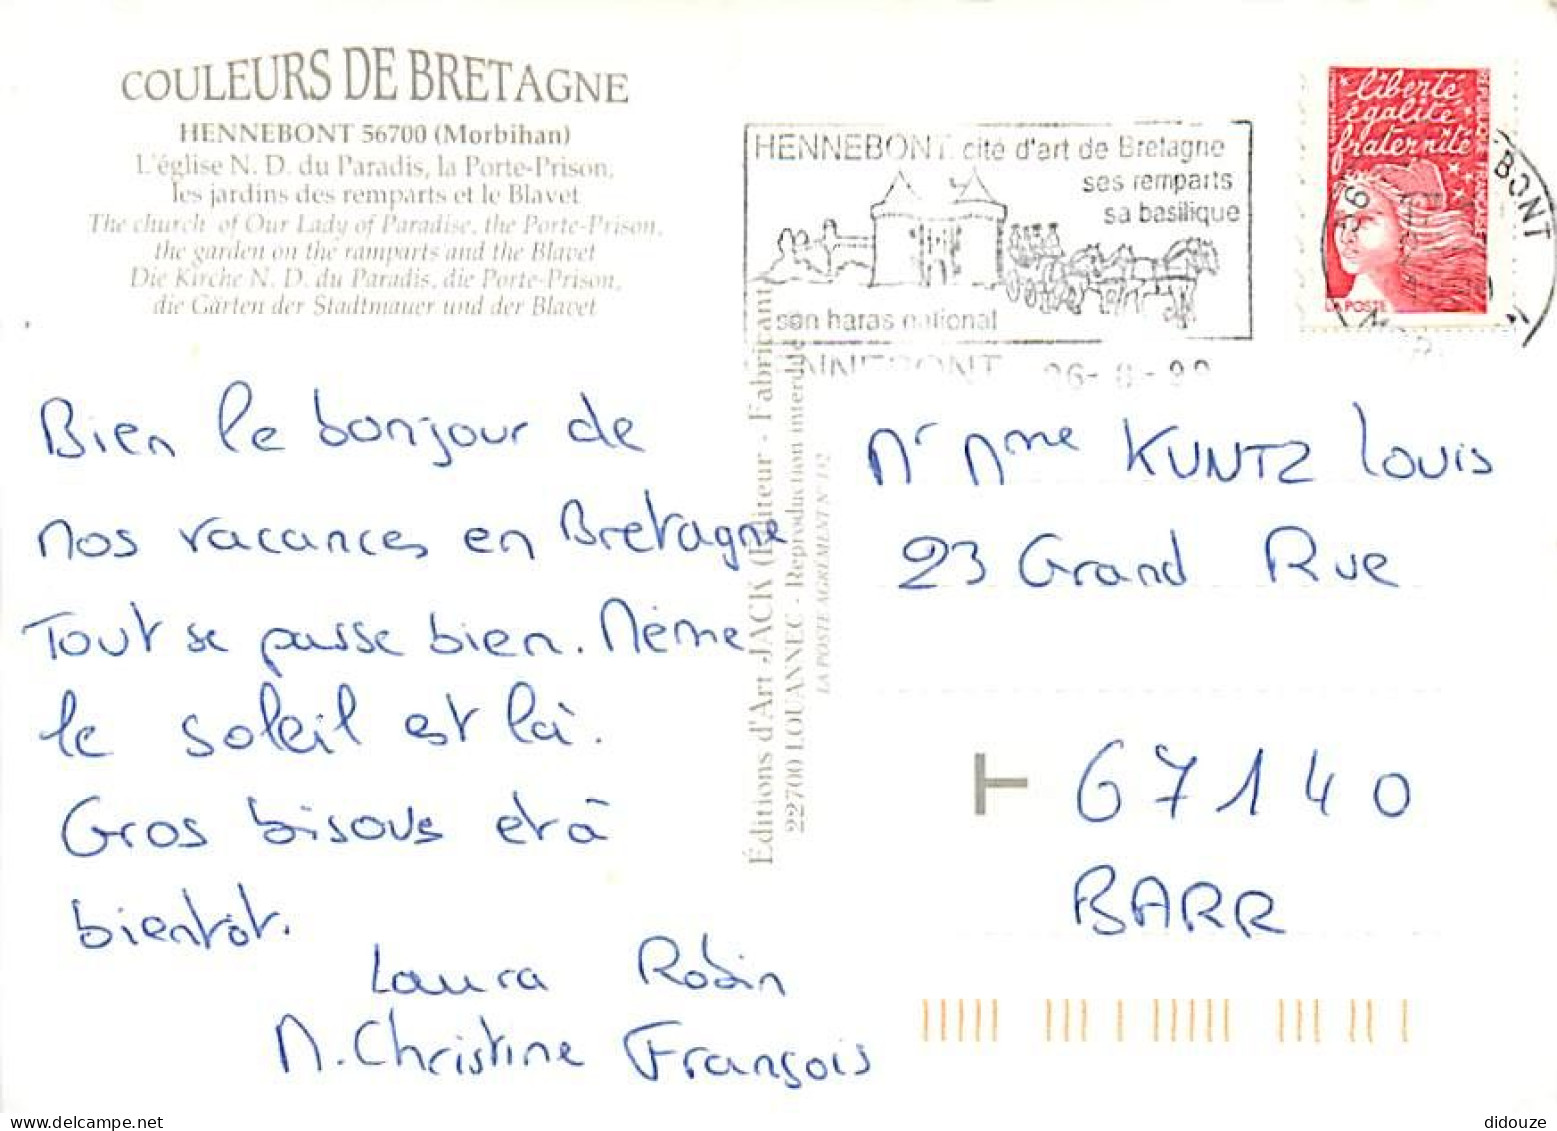 COULEURS DE BRETAGNE
HENNEBONT 56700 (Morbihan)
L'église N. D. du Paradis, la Porte-Prison,
les jardins des remparts et le Blavet
The church of Our Lady of Paradise, the Porte-Prison,
the garden on the ramparts and the Blavet
Die Kirche N. D. du Paradis, die Porte-Prison,
die Gärten der Stadtmauer und der Blavet
Bien le bonjour de
nos vacances en Bretagne
Tout se passe bien. Même
le soleil est là.
Gros bisous et à
bientôt.
Laura Robin
M.Christine François
Éditions d'Art JACK (Éditeur - Fabricant)
22700 LOUANNEC - Reproduction interdite
LA POSTE AGREMENT N° 132
HENNEBONT cité d'art de Bretagne
ses remparts
sa basilique
son haras national
HENNEBONT
liberté
égalité
fraternité
RÉPUBLIQUE FRANÇAISE
LA POSTE
Mr Mme KUNTZ Louis
23 Grand Rue
67140
BARR
didouze